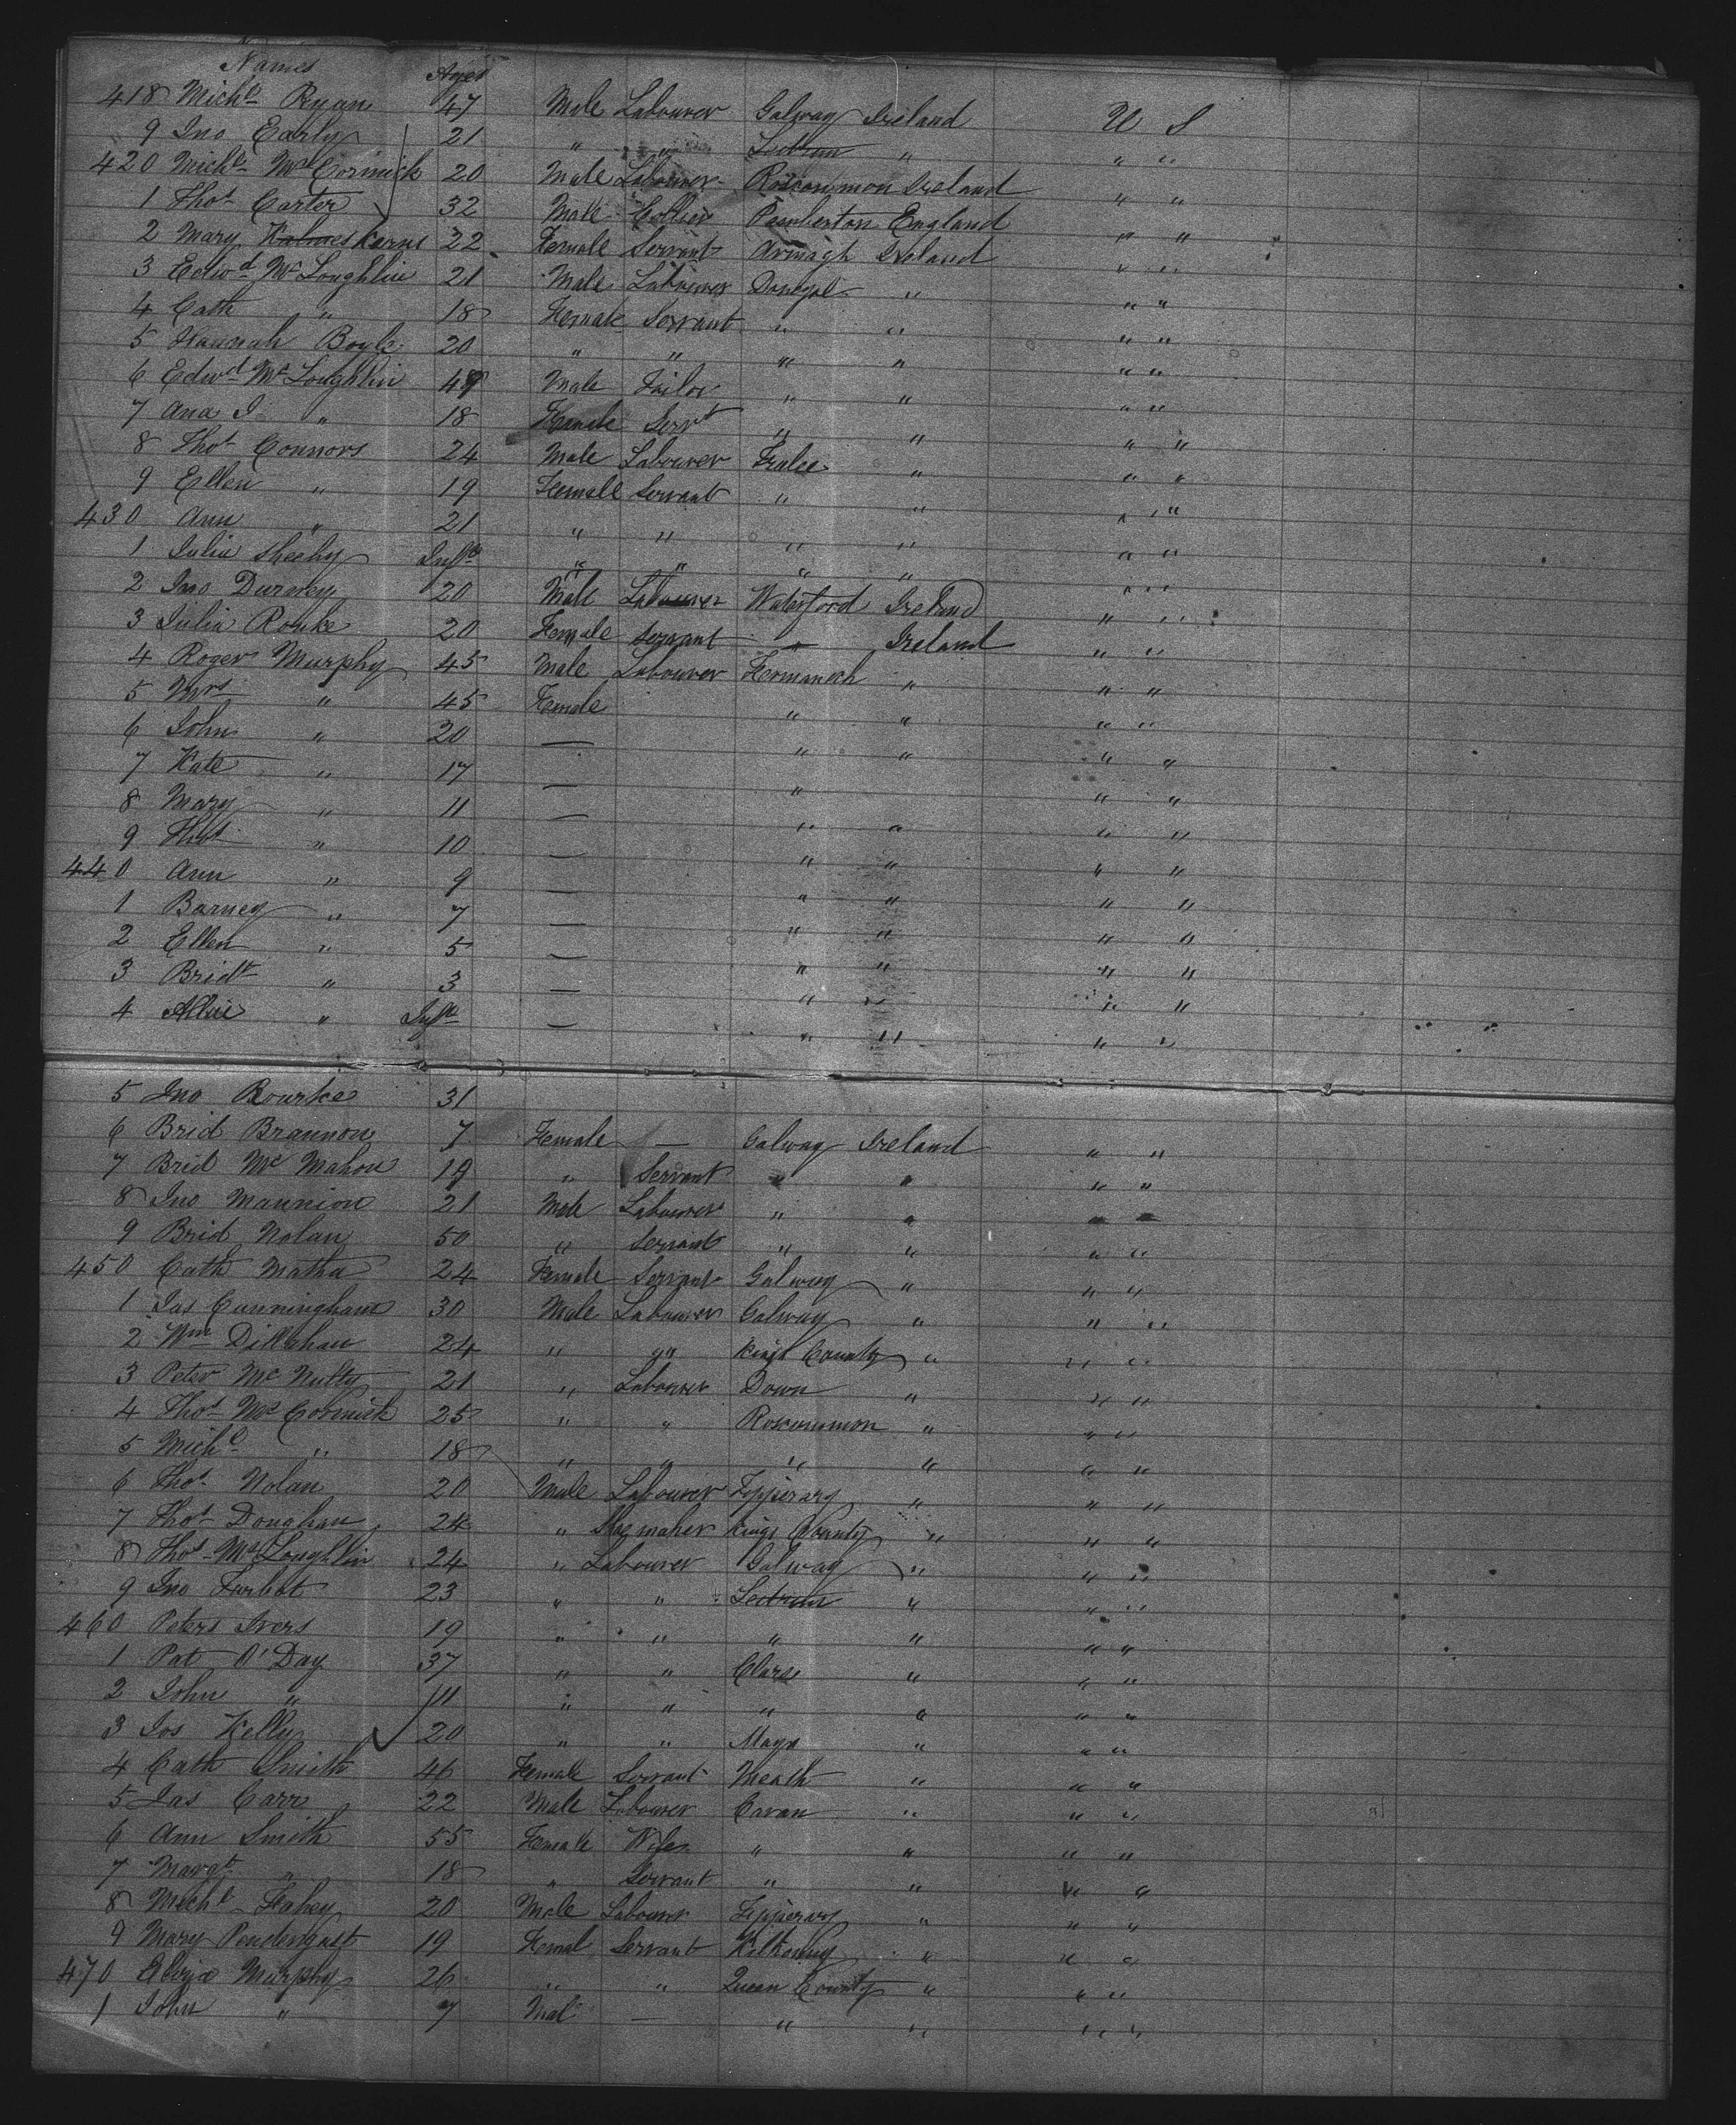 Names Ages
418 Michl Ryan 47 Male Labourer Galway Ireland U S
9 Jno Early 21 " " Leitrim " " "
420 Michl McCormick 20 Male Labourer Roscommon Ireland " "
1 Thos Carter 32 Male Collier Pemberton England " "
2 Mary Kerns 22 Female Servant Armagh Ireland " "
3 Edwd McLoughlin 21 Male Labourer Donegal " " "
4 Cath " 18 Female Servant " " " "
5 Hannah Boyle 20 " " " " " "
6 Edwd McLoughlin 49 Male Tailor " " " "
7 Ana J " 18 Female Servt " " " "
8 Thos Connors 24 Male Labourer Tralee " " "
9 Ellen " 19 Female Servant " " " "
430 Ann " 21 " " " " " "
1 Julia Sheehy Inft " " " " " "
2 Jno Durney 20 Male Labourer Waterford Ireland " "
3 Julia Rouke 20 Female Servant " Ireland " "
4 Roger Murphy 45 Male Labourer Fermanach " " "
5 Mrs " 45 Female " " " "
6 John " 20 — " " " "
7 Kate " 17 — " " "
8 Mary " 11 — " " " "
9 Thos " 10 — " " " "
440 Ann " 9 — " " " "
1 Barney " 7 — " " " "
2 Ellen " 5 — " " " "
3 Bridt " 3 — " " " "
4 Allie " Inft — " " " "
5 Jno Rourke 31
6 Brid Brannon 7 Female — Galway Ireland " "
7 Brid McMahon 19 " Servant " " " "
8 Jno Mannion 21 Male Labourer " " " "
9 Brid Nolan 50 " Servant " " " "
450 Cath Matha 24 Female Servant Galway " " "
1 Jas Cunningham 30 Male Labourer Galway " " "
2 Wm Dillahan 24 " " Kings County " " "
3 Peter McNulty 21 " Labourer Down " " "
4 Thos McCormick 25 " " Roscommon " " "
5 Michl " 18 " " " " " "
6 Thos Nolan 20 Male Labourer Tipperary " " "
7 Thos Doughan 24 " Shoemaker Kings County " " "
8 Thos McLoughlin 24 " Labourer Galway " " "
9 Jno Turbot 23 " " Leitrim " " "
460 Peters Ivers 19 " " " " " "
1 Pat O'Day 37 " " Clare " " "
2 John " 11 " " " " " "
3 Jos Kelly 20 " " Mayo " " "
4 Cath Smith 46 Female Servant Meath " " "
5 Jas Carr 22 Male Labourer Cavan " " "
6 Ann Smith 55 Female Wife " " " "
7 Margt " 18 " Servant " " " "
8 Michl Fahey 20 Male Labourer Tipperary " " "
9 Mary Pendergast 19 Femal Servant Kilkenny " " "
470 Murphy 26 " " Queen County " " "
1 John " 7 Mal — " " " "